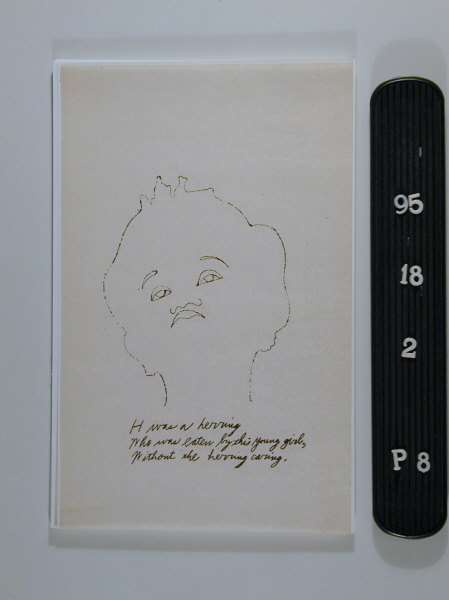 H was a herring
Who was eaten by this young girl,
Without the herring caring.
95
18
2
P 8